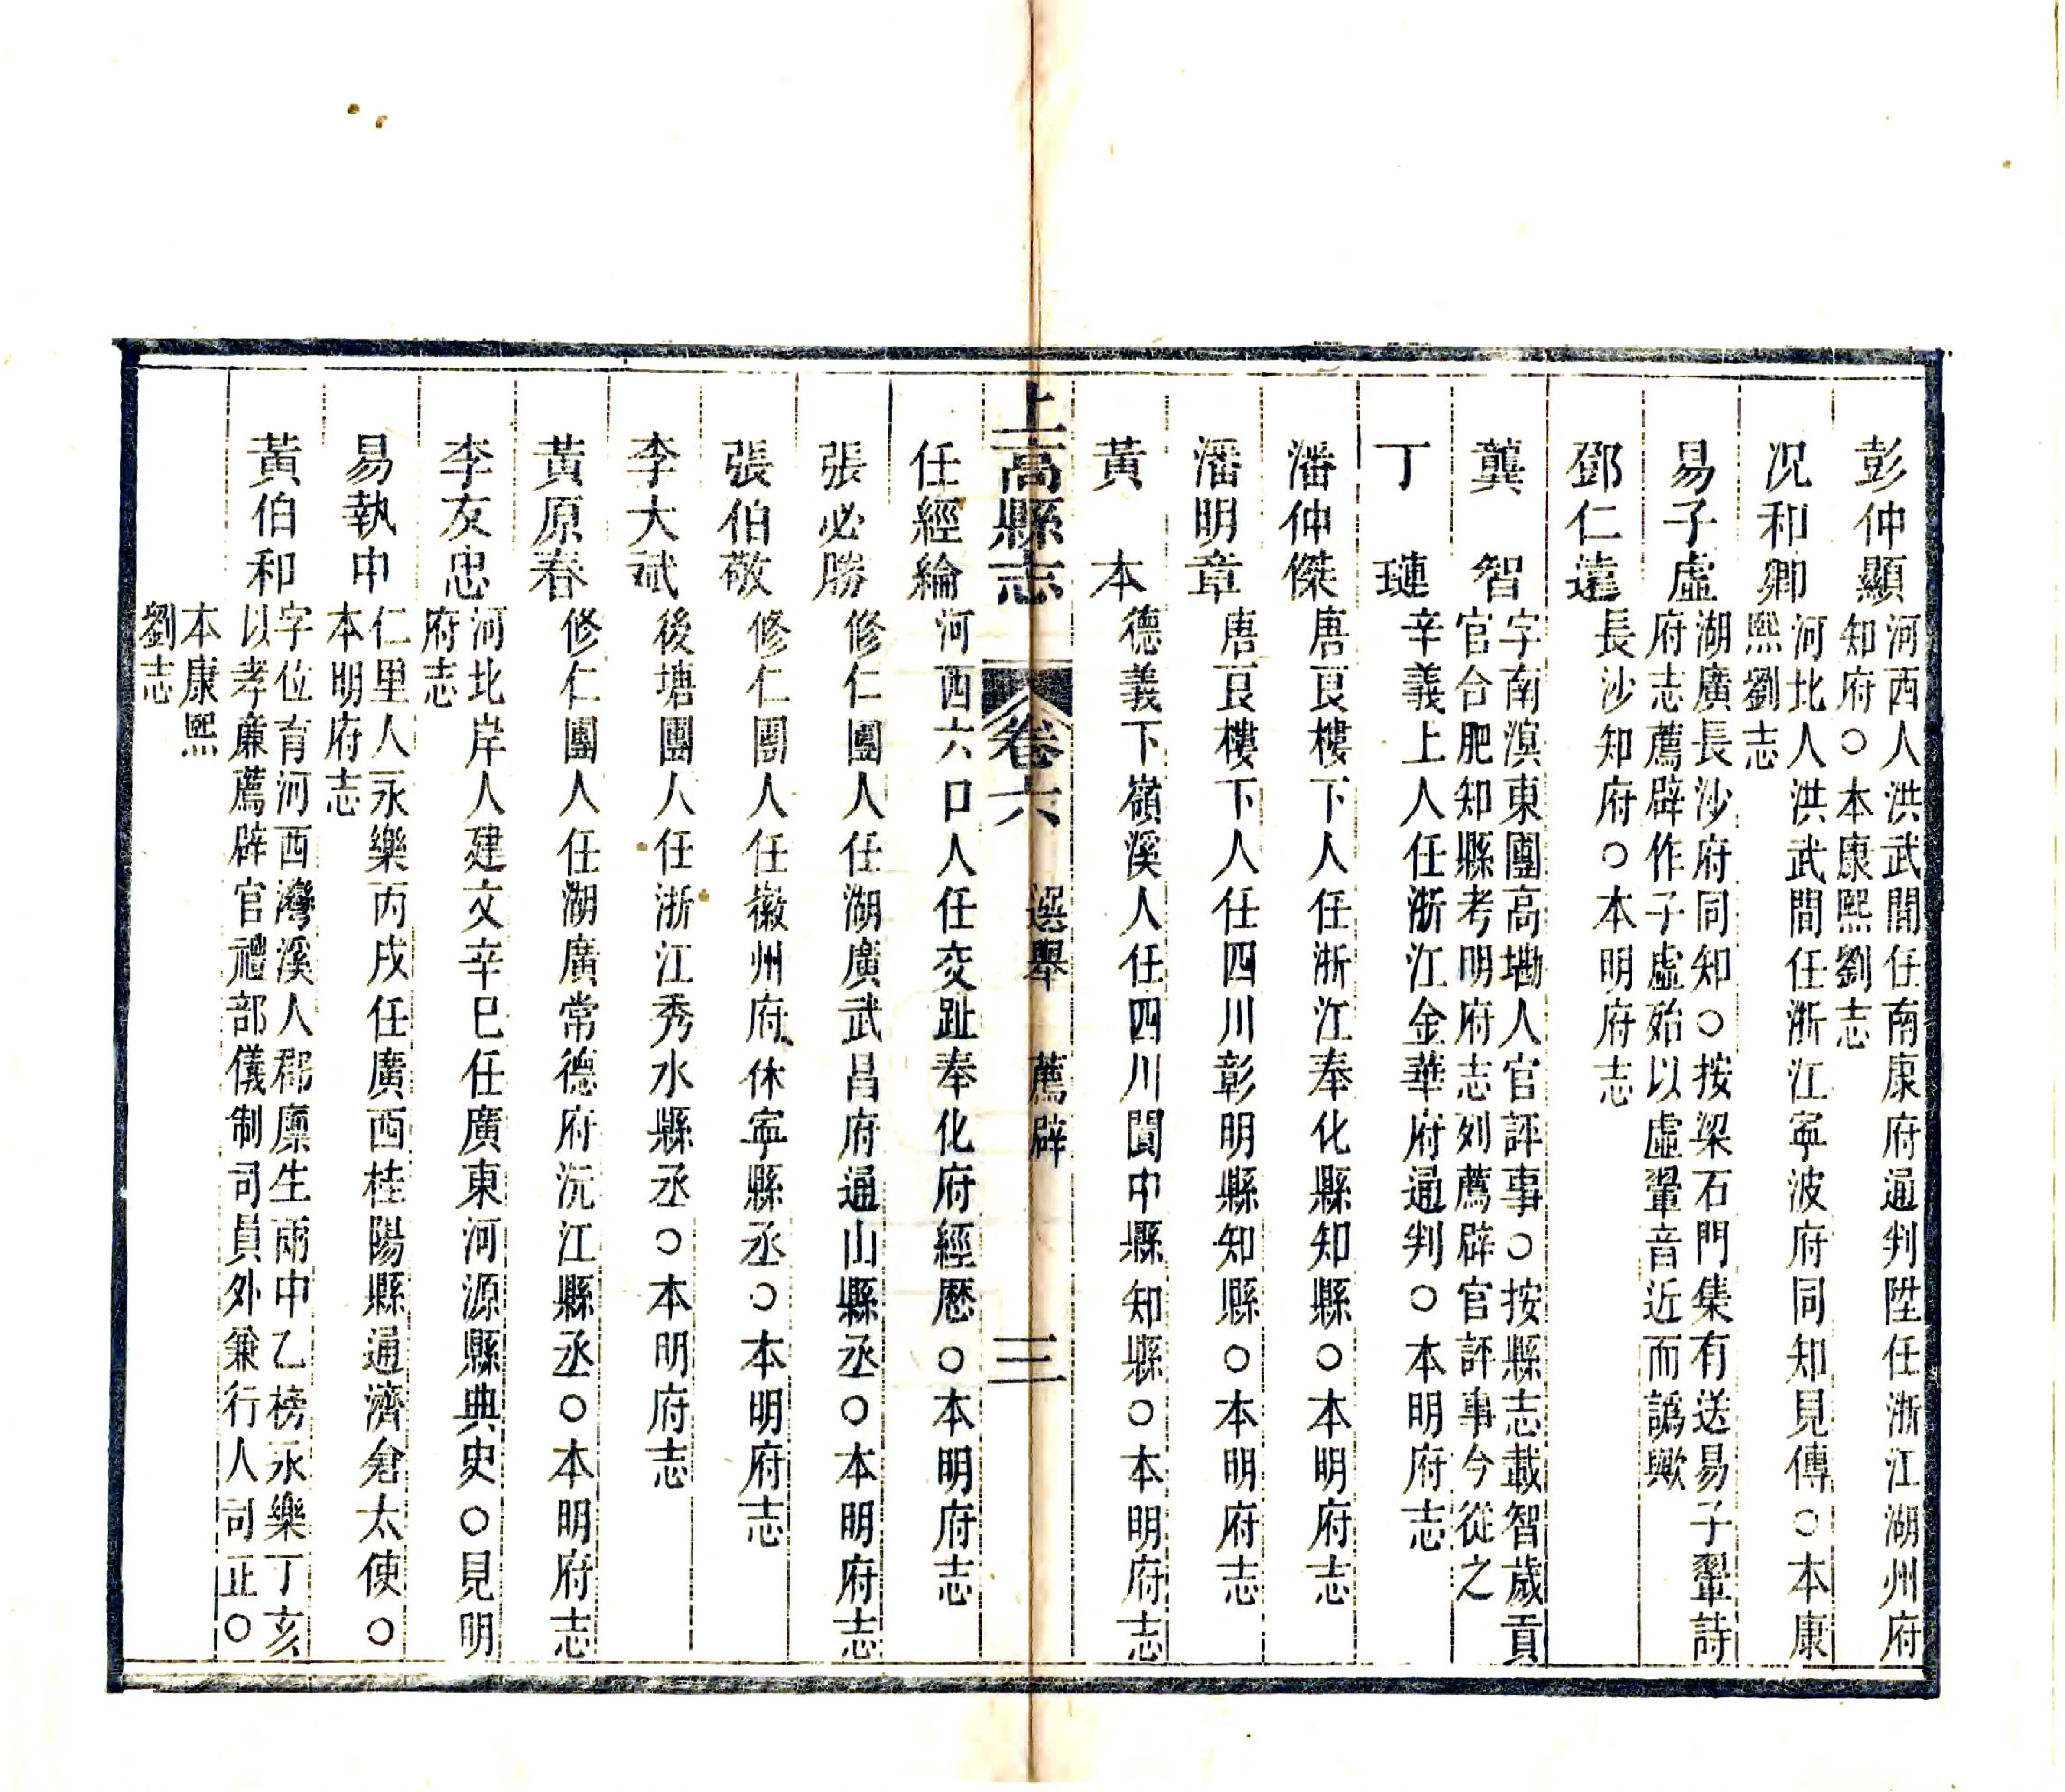 彭仲顯
河西人洪武間任南康府通判陞任浙江湖州府
知府○本康熙劉志
况和卿
河北人洪武間任浙江寧波府同知見傳○本康
熙劉志
易子虛
湖廣長沙府同知○按梁石門集有送易子翬詩
府志薦辟作子虛始以虛翬音近而譌歟
鄧仁遠
長沙知府○本明府志
龔智
字南溟東團高塅人官評事○按縣志載智歲貢
官合肥知縣考明府志列薦辟官評事今從之
丁璉
辛義上人任浙江金華府通判○本明府志
潘仲傑
唐良樓下人任浙江奉化縣知縣○本明府志
潘明章
唐良樓下人任四川彰明縣知縣○本明府志
黃本
德義下嶺溪人任四川閬中縣知縣○本明府志
上高縣志 卷六 選舉 薦辟 三
任經綸
河西六口人任交趾奉化府經歷○本明府志
張必勝
修仁團人任湖廣武昌府通山縣丞○本明府志
張伯敬
修仁團人任徽州府休寧縣丞○本明府志
李大斌
後塘團人任浙江秀水縣丞○本明府志
黃原春
修仁團人任湖廣常德府沅江縣丞○本明府志
李友忠
河北岸人建文辛巳任廣東河源縣典史○見明
府志
易執中
仁里人永樂丙戌任廣西桂陽縣通濟倉太使○
本明府志
黃伯和
字位育河西灣溪人郡廪生兩中乙榜永樂丁亥
以孝廉薦辟官禮部儀制司員外兼行人司正○
本康熙
劉志